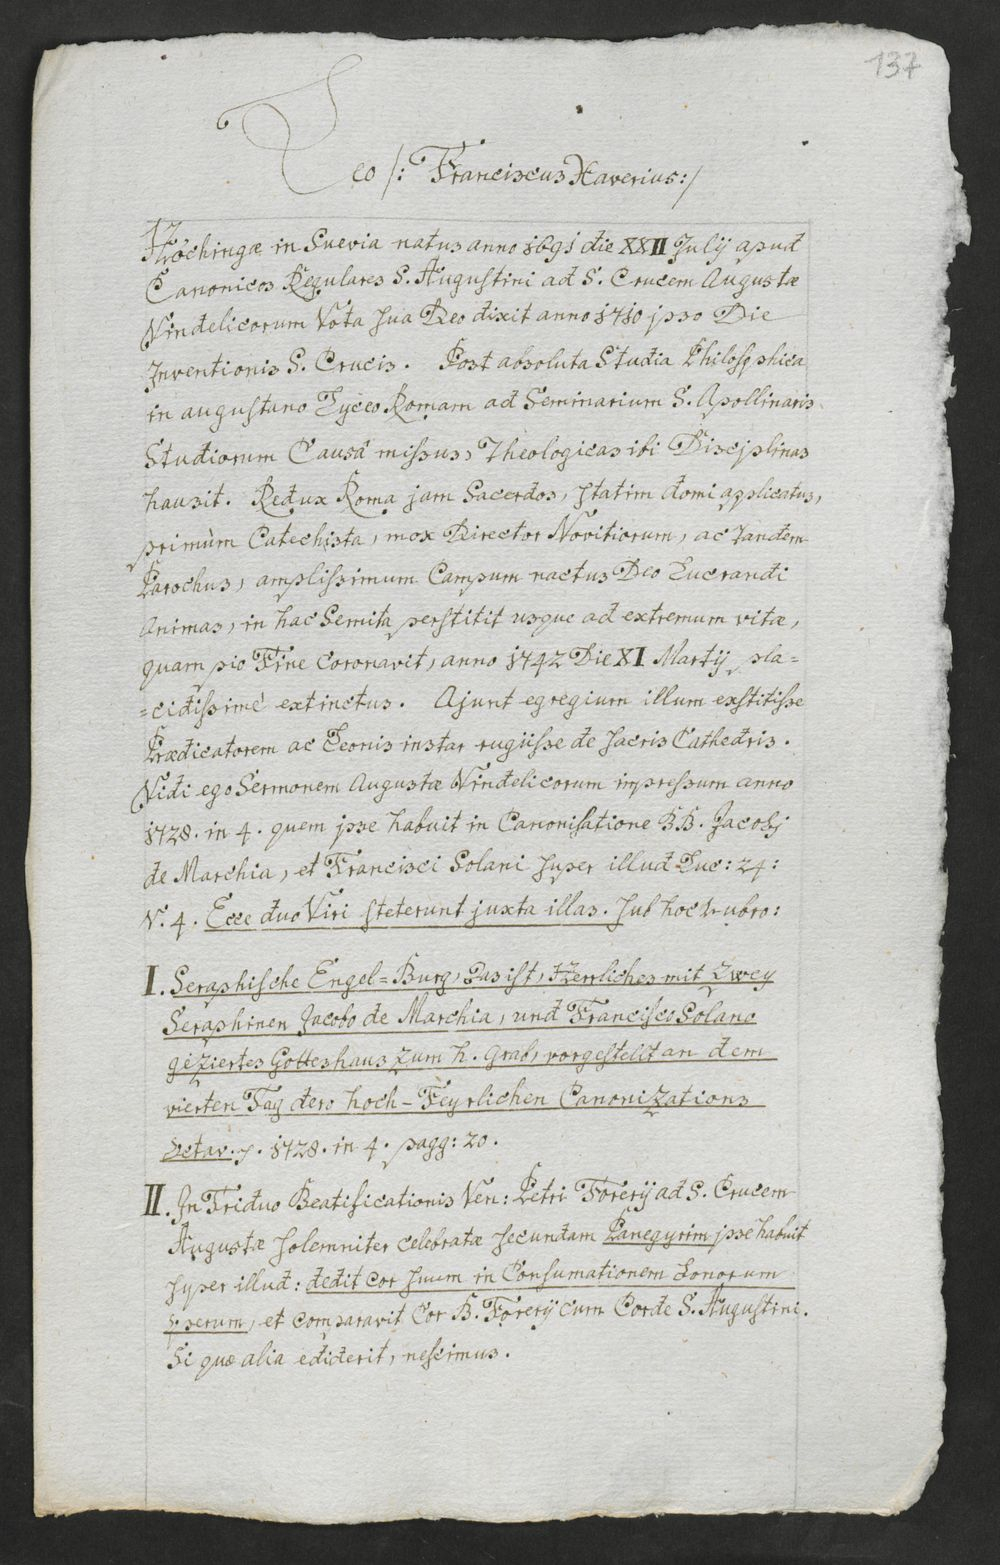 137
Leo /: Franciscus Xaverius:/
Höchingæ in Suevia natus anno 1691 die XXII Julij apud
Canonicos Regulares S. Augustini ad S. Crucem Augustæ
Vindelicorum Vota sua Deo dixit anno 1710 jpso Die
Jnventionis S. Crucis. Post absoluta Studia Philosophica
in augustano Lyceo Romam ad Seminarium S. Apollinaris
Studiorum Causâ missus, Theologicas ibi Discjplinas
hausit. Redux Româ jam Sacerdos, statim domi applicatus,
primùm Catechista, mox Director Novitiorum, ac tandem
Parochus, amplissimum Campum nactus Deo Lucrandi
Animas, in hac Semita perstitit usque ad extremum vitæ,
quam pio Fine coronavit, anno 1742 Die XI Martij pla=
=cidissimè extinctus. Ajunt egregium illum exstitisse
Prædicatorem ac Leonis instar rugiisse de sacris Cathedris.
Vidi ego Sermonem Augustæ Vindelicorum impressum anno
1728. in 4. quem jpse habuit in Canonisatione B.B. Jacobj
de Marchia, et Francisci Solani super illud Luc: 24:
V. 4. Ecce duo Viri steterunt juxta illas. sub hoc rubro:
I. Seraphische Engel=Burg, Das ist, Herrliches mit Zwey
Seraphinen Jacobo de Marchia, und Francisco Solano
geziertes Gotteshaus zum H. Grab, vorgestellt an dem
vierten Tag dero hoch-Feyrlichen Canonizations
Octav. 1728. in 4. pagg: 20.
II. Jn Triduo Beatificationis Ven: Petri Forerij ad S. Crucem
Augustæ solemniter celebratæ secundam Panegyrim jpse habuit
super illud: dedit cor suum in Consumationem bonorum
operum, et comparavit Cor B. Forerij cum Corde S. Augustini.
Si quæ alia ediderit, nescimus.